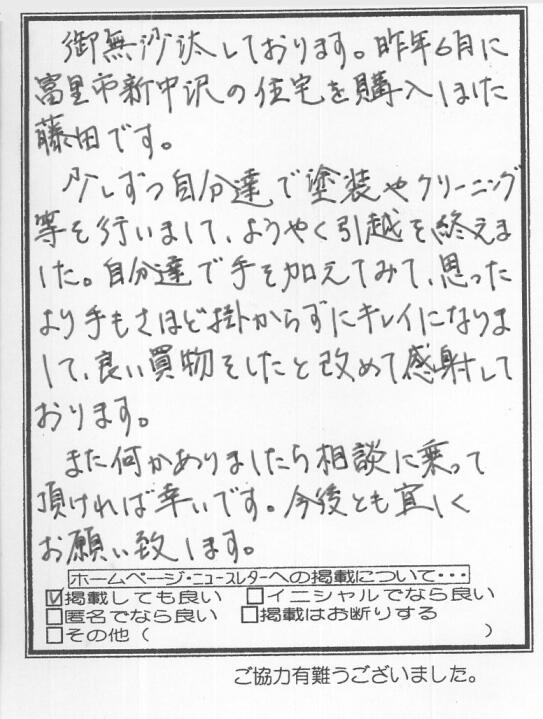 御無沙汰しております。昨年6月に
富里市新中沢の住宅を購入しました
藤田です。
少しずつ自分達で塗装やクリーニング
等を行いまして、ようやく引越を終えま
した。自分達で手を加えてみて、思った
より手もさほど掛からずにキレイになりま
して、良い買物をしたと改めて感射して
おります。
また何かありましたら相談に乗って
頂ければ幸いです。今後とも宜しく
お願い致します。
ホームページ・ニュースレターへの掲載について・・・
☑掲載しても良い □イニシャルでなら良い
□匿名でなら良い □掲載はお断りする
□その他（ ）
ご協力有難うございました。